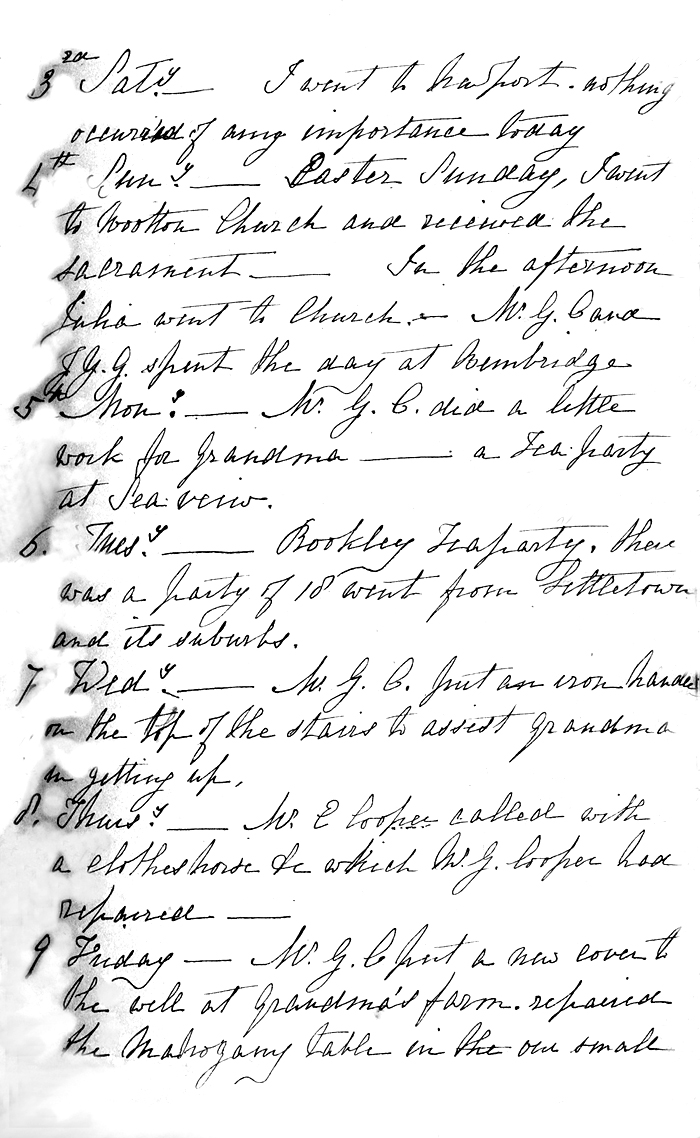 3rd Saty — I went to Newport. nothing
occurred of any importance today
4th Suny. — Easter Sunday, I went
to Wootton Church and received the
sacrament — In the afternoon
Julia went to Church. — Mr. G. C and
J.Y.G. spent the day at Bembridge
5th Mony. — Mr. G. C. did a little
work for Grandma — a Tea party
at Sea veiw.
6. Tuesy. — Rookley Teaparty. there
was a party of 18 went from Littletown
and its suburbs.
7 Wedy. — Mr. G. C. put an iron handle
on the top of the stairs to assist Grandma
in getting up.
8. Thursy. — Mr. E Cooper called with
a clotheshorse &c which Mr. G. Cooper had
repaired —
9 Friday — Mr. G. C put a new cover to
the well at Grandma's farm. repaired
the Mahogany table in the our small